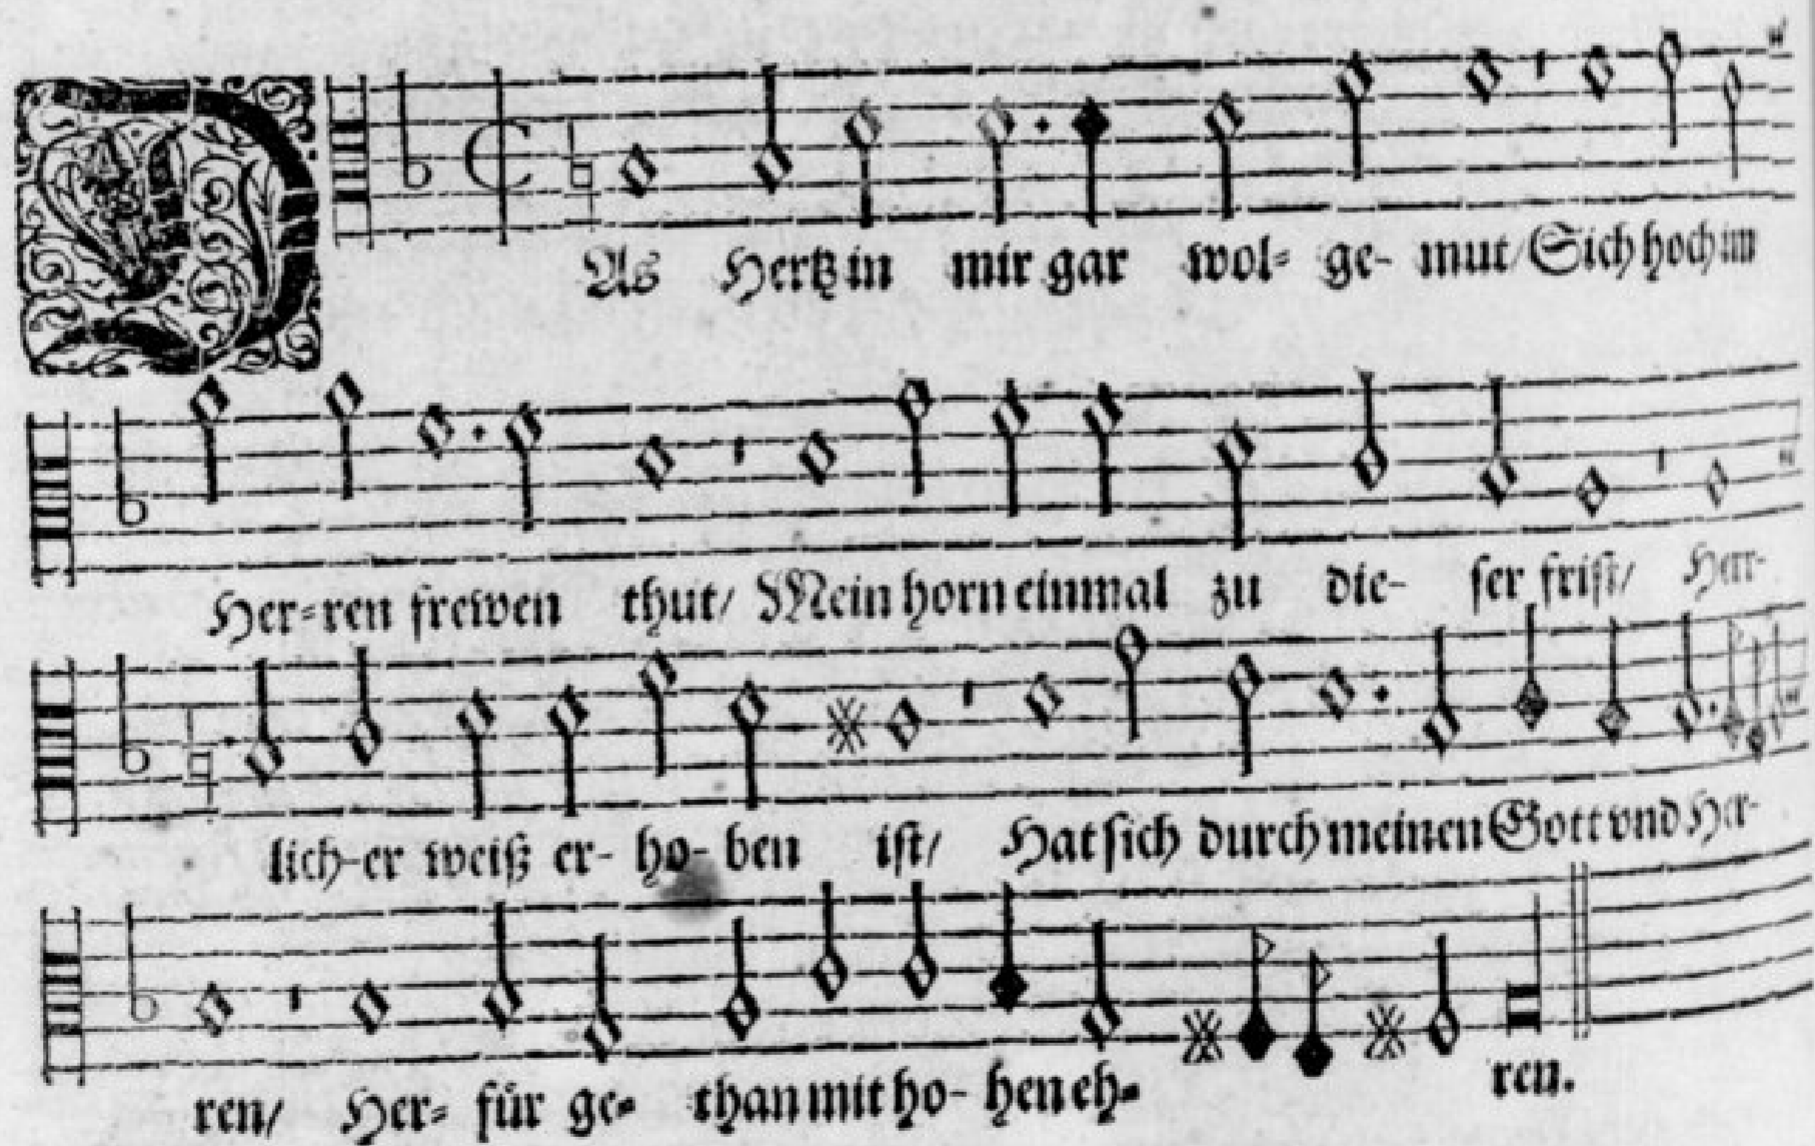 DAs Hertz in mir gar wol⸗ ge- mut/ Sich hoch im
Her⸗ren frewen thut/ Mein horn einmal zu die- ser frist/ Herr-
lich-er weiß er- ho- ben ist/ Hat sich durch meinen Gott vnd Her-
ren/ Her⸗ für ge⸗ than mit ho- hen eh⸗ ren.